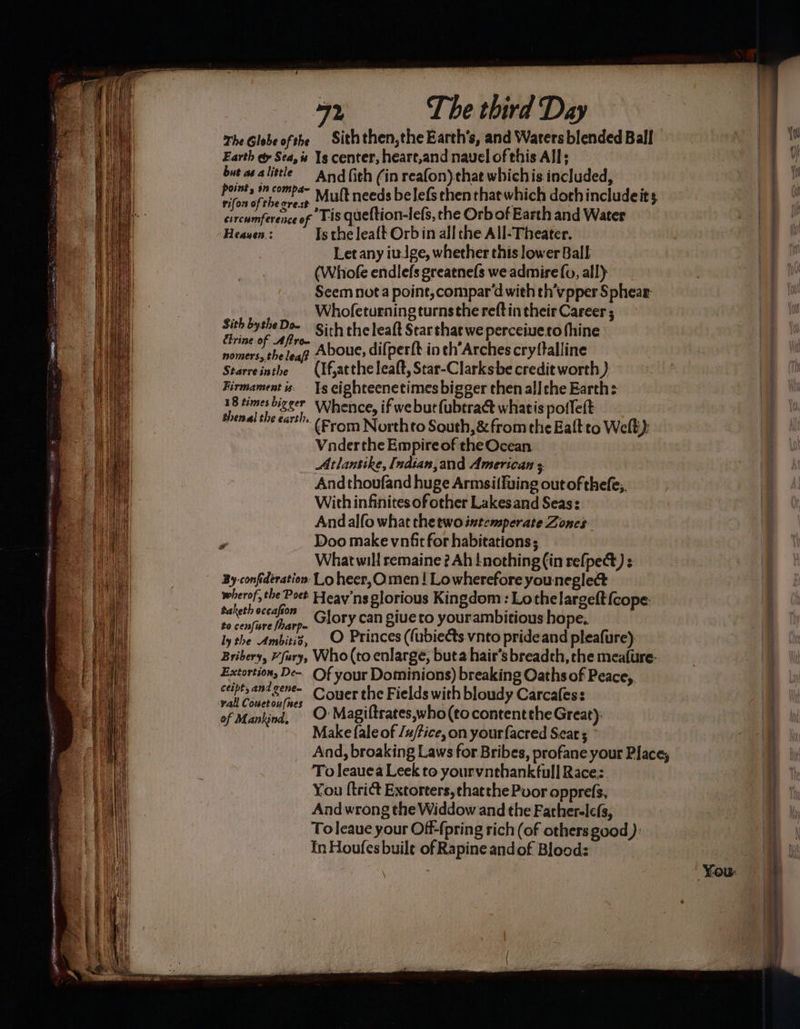 72 The third Day
The Globe of the Earth & Sea, is but as a little point, in comparison of the great circumference of Heauen.
Sith then, the Earth's, and Waters blended Ball
Is center, heart, and nauel of this All;
And sith (in reason) that which is included,
Must needs be less then that which doth include it;
'Tis question-less, the Orb of Earth and Water
Is the least Orb in all the All-Theater.
Let any iudge, whether this lower Ball
(Whose endless greatness we admire so, all)
Seem not a point, compar'd with th'vpper Sphear
Whose turning turns the rest in their Career;
Sith by the Doctrine of Astronomers, the least Starre in the Firmament is 18 times bigger then al the earth.
Sith the least Star that we perceiue to shine
Aboue, disperst in th'Arches crystalline
(If, at the least, Star-Clarks be credit worth)
Is eighteene times bigger then all the Earth:
Whence, if we but substract what is possest
(From North to South, & from the East to West)
Vnder the Empire of the Ocean
Atlantike, Indian, and American;
And thousand huge Arms issuing out of these,
With infinites of other Lakes and Seas:
And also what the two intemperate Zones
Doo make vnfit for habitations;
What will remaine? Ah! nothing (in respect):
By consideration wherof, the Poet taketh occasion to censure sharply the Ambitiō, Bribery, Vsury, Extortion, Deceipt, and generall Couetousnes of Mankind.
Lo heer, O men! Lo wherefore you neglect
Heav'ns glorious Kingdom: Lo the largest scope
Glory can giue to your ambitious hope.
O Princes (subiects vnto pride and pleasure)
Who (to enlarge, but a hair's breadth, the measure
Of your Dominions) breaking Oaths of Peace,
Couer the Fields with bloudy Carcases:
O Magistrates, who (to content the Great)
Make sale of Iustice, on your sacred Seat;
And, broaking Laws for Bribes, profane your Place,
To leaue a Leek to your vnthankfull Race:
You strict Extorters, that the Poor oppress,
And wrong the Widdow and the Father-less,
To leaue your Off-spring rich (of others good)
In Houses built of Rapine and of Blood:
You